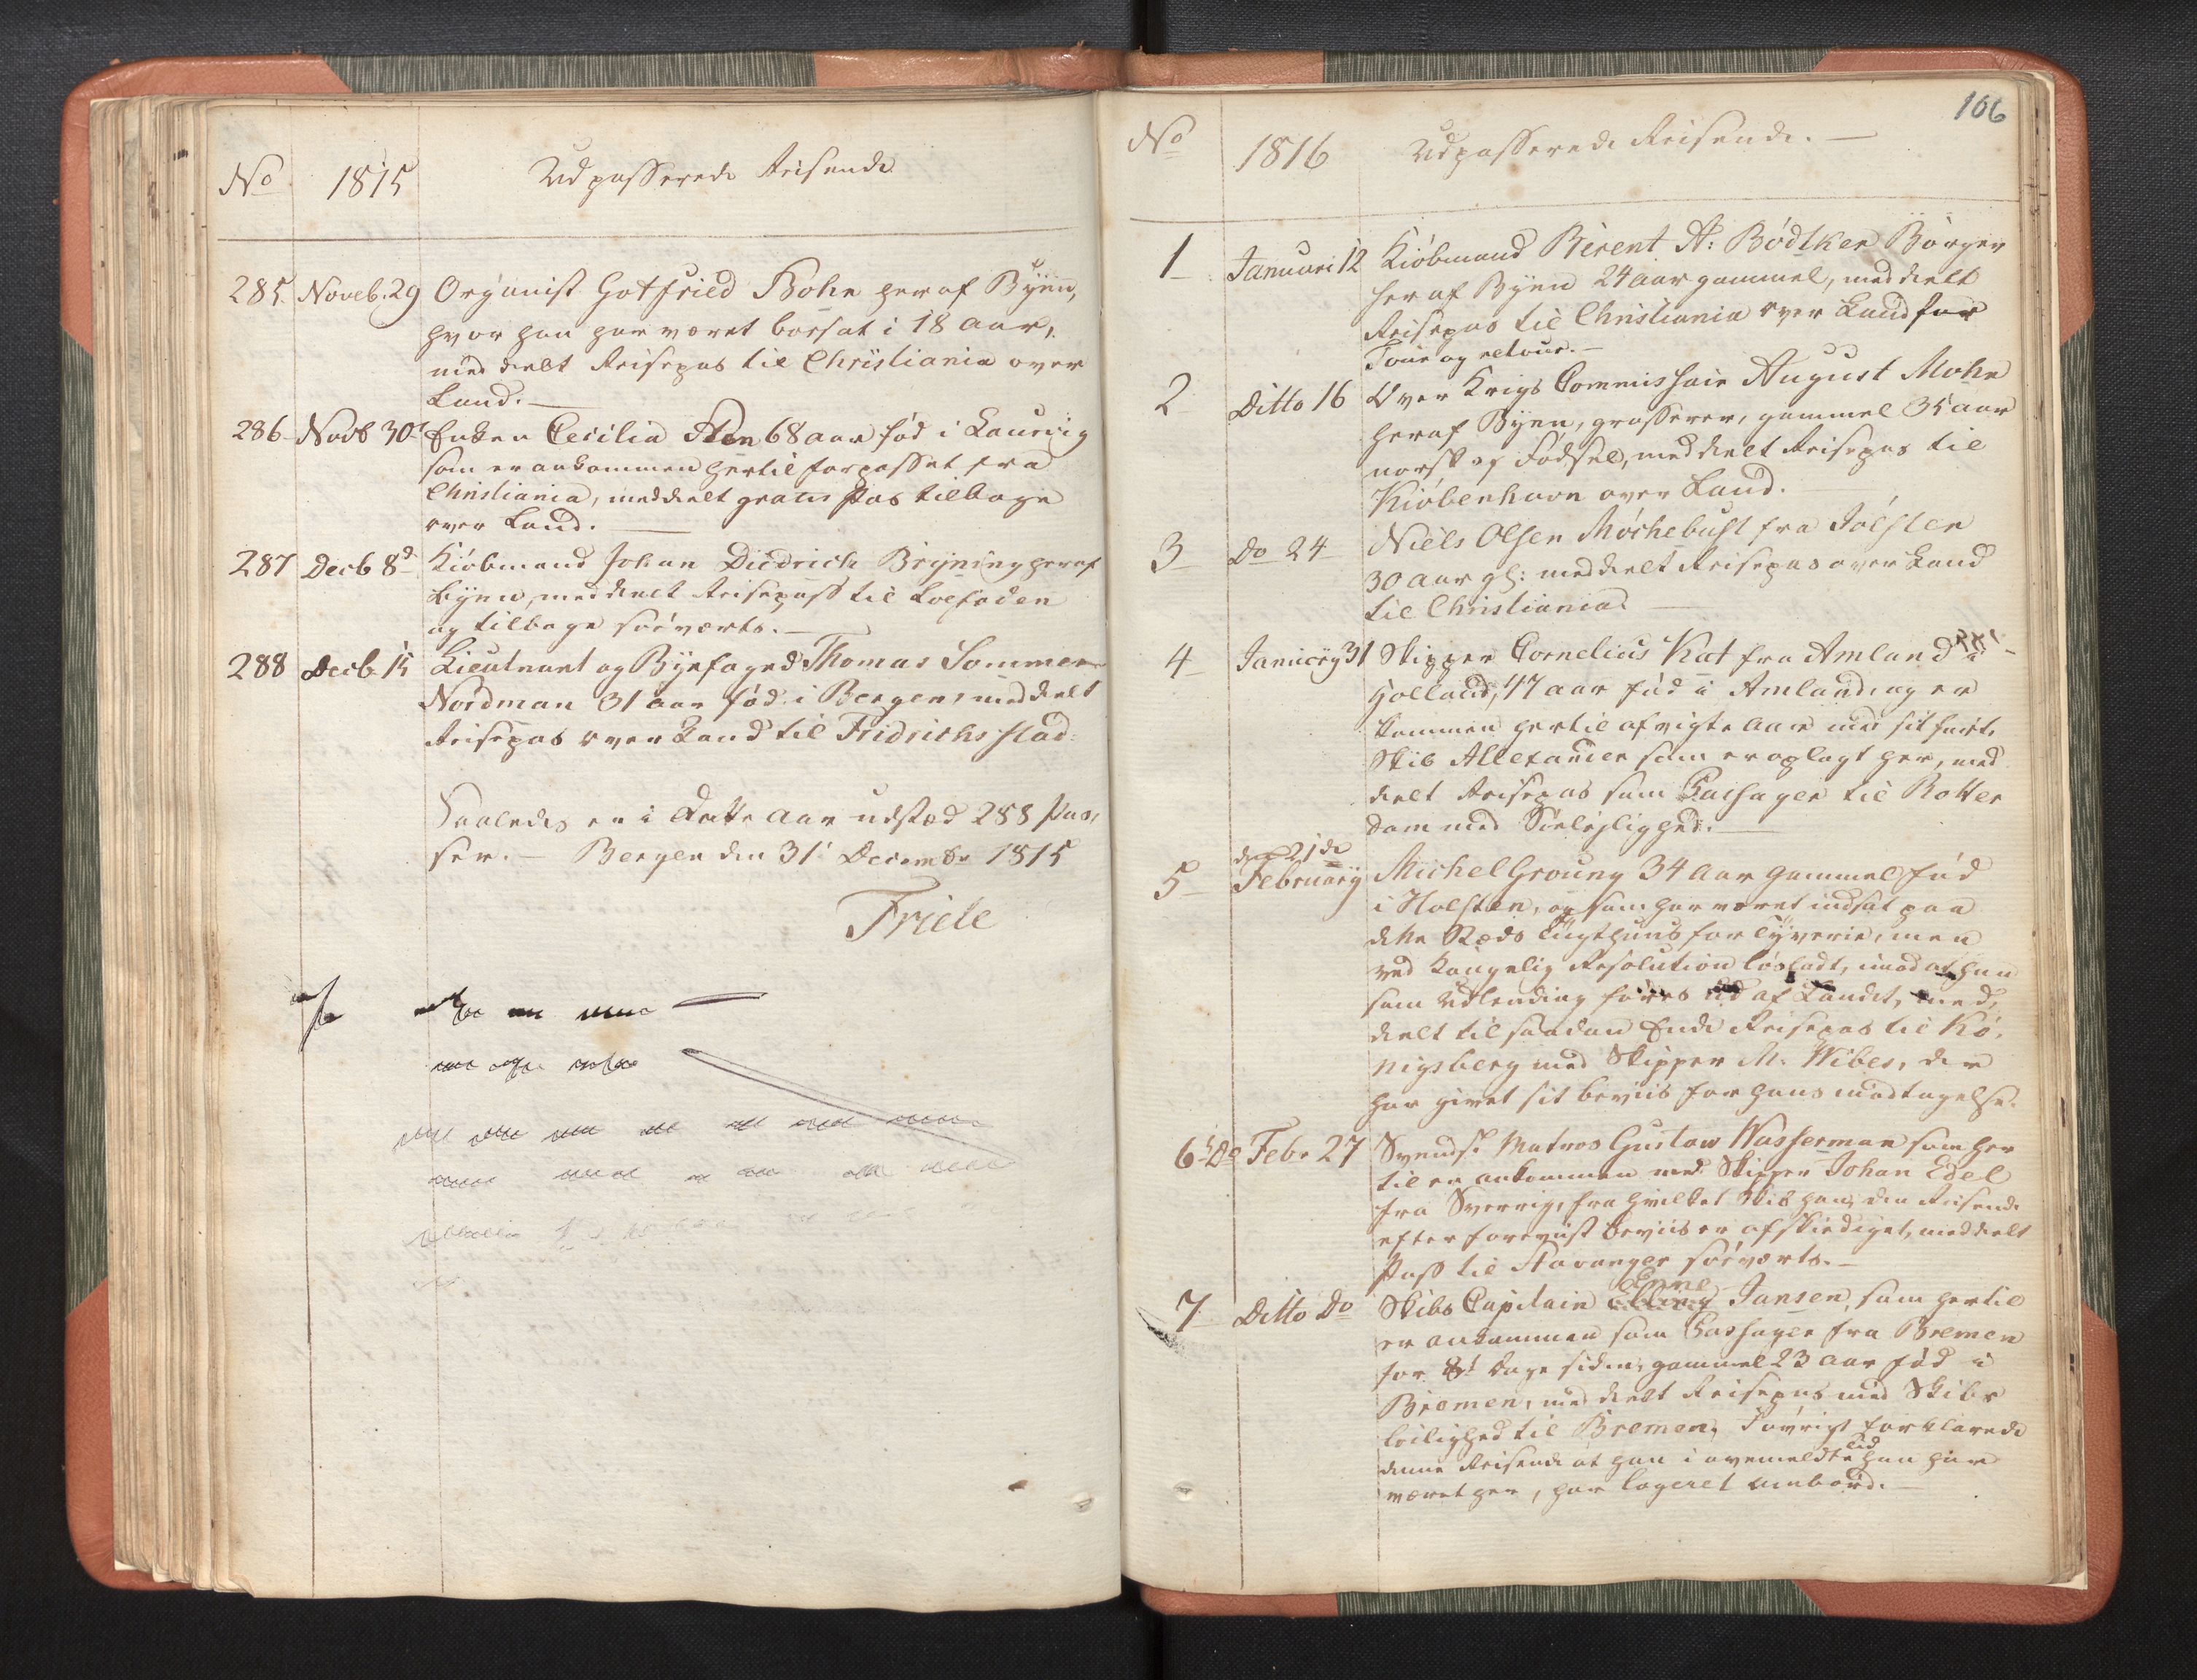 No 1815 Udpasserede Reisende
285. Noveb. 29 Organist Gotfried Bohr her af Byen,
hvor han har været boesat i 18 aar,
meddeelt Reisepas til Christiania over
Land.
286 Novb 30t Enken Cecilia Sten 68 aar fød i Laurvig
som er ankommen hertil forpasset fra
Christiania, meddeelt gratis Pas tilbage
over Land.
287 Decb 8d Kiöbmand Johan Diedrich Bryning heraf
Byen, meddeelt Reisepass til Loefoden
og tilbage söeværts.
288 Decb. 15 Lieutnant og Byefoged Thomas Sommer
Nordman 31 aar fød i Bergen, meddeelt
Reisepas over Land til Fridrichs stad.
Saaledes er i dette Aar udsted 288 Pas,
ser. Bergen den 31 Decembr 1815
Friele
106
No 1816 Udpasserede Reisende.
1 Januari 12 Kiöbmand Berent A: Bödtker Borger
her af Byen 24 aar gammel, meddeelt
Reisepas til Christiania over Land for
Tour og retour.
2 Ditto 16 Over Krigs Commissair August Mohr
heraf Byen, grosserer, gammel 35 aar
norsk af Födsel, meddeelt Reisepas til
Kiöbenhavn over Land.
3 Do 24 Niels Olsen Möchebust fra Jölster
30 aar gl: meddeelt Reisepas over Land
til Christiania
4 Januari 31 Skipper Cornelius Kat fra Amland i
Holland, 47 aar fød i Amland, og er
kommen hertil afvigte Aar med sit førte
Skib Allexander som er oplagt her, med
deelt Reisepas som Passager til Rotter
dam med Söelejlighed.
den 21de
5 February Michel Groung 34 Aar gammel fød
i Holsten, og som har været indsat paa
dette Steds Tugthuus for Tyverie, men
ved Kongelig Resolution lösladt, imod at han
som Udlending föres ud af Landet, med,
deelt til saadan Ende Reisepas til Kö,
nigsberg med Skipper M. Wibes, der
har givet sit beviis for hans modtagelse.
6 Do Febr 27 Svensk Matros Gustaw Wasserman som her
til er ankommen med Skipper Johan Edel
fra Sverrig, fra hvilket Skib han, den Reisende
efter foreviist beviis er afskediget, meddeelt
Pass til Stavanger söeværts.
Enne
7 Ditto Do Skibs Capitain Jansen, som hertil
er ankommen som Passager fra Bremen
for 8t Dage siden, gammel 23 aar fød i
Bremen, meddeelt Reisepas med Skibs
leilighed til Bremen, Iövrigt forklarede
denne Reisende at han i ovenmeldte tid han har
været her, har logeret ombord.